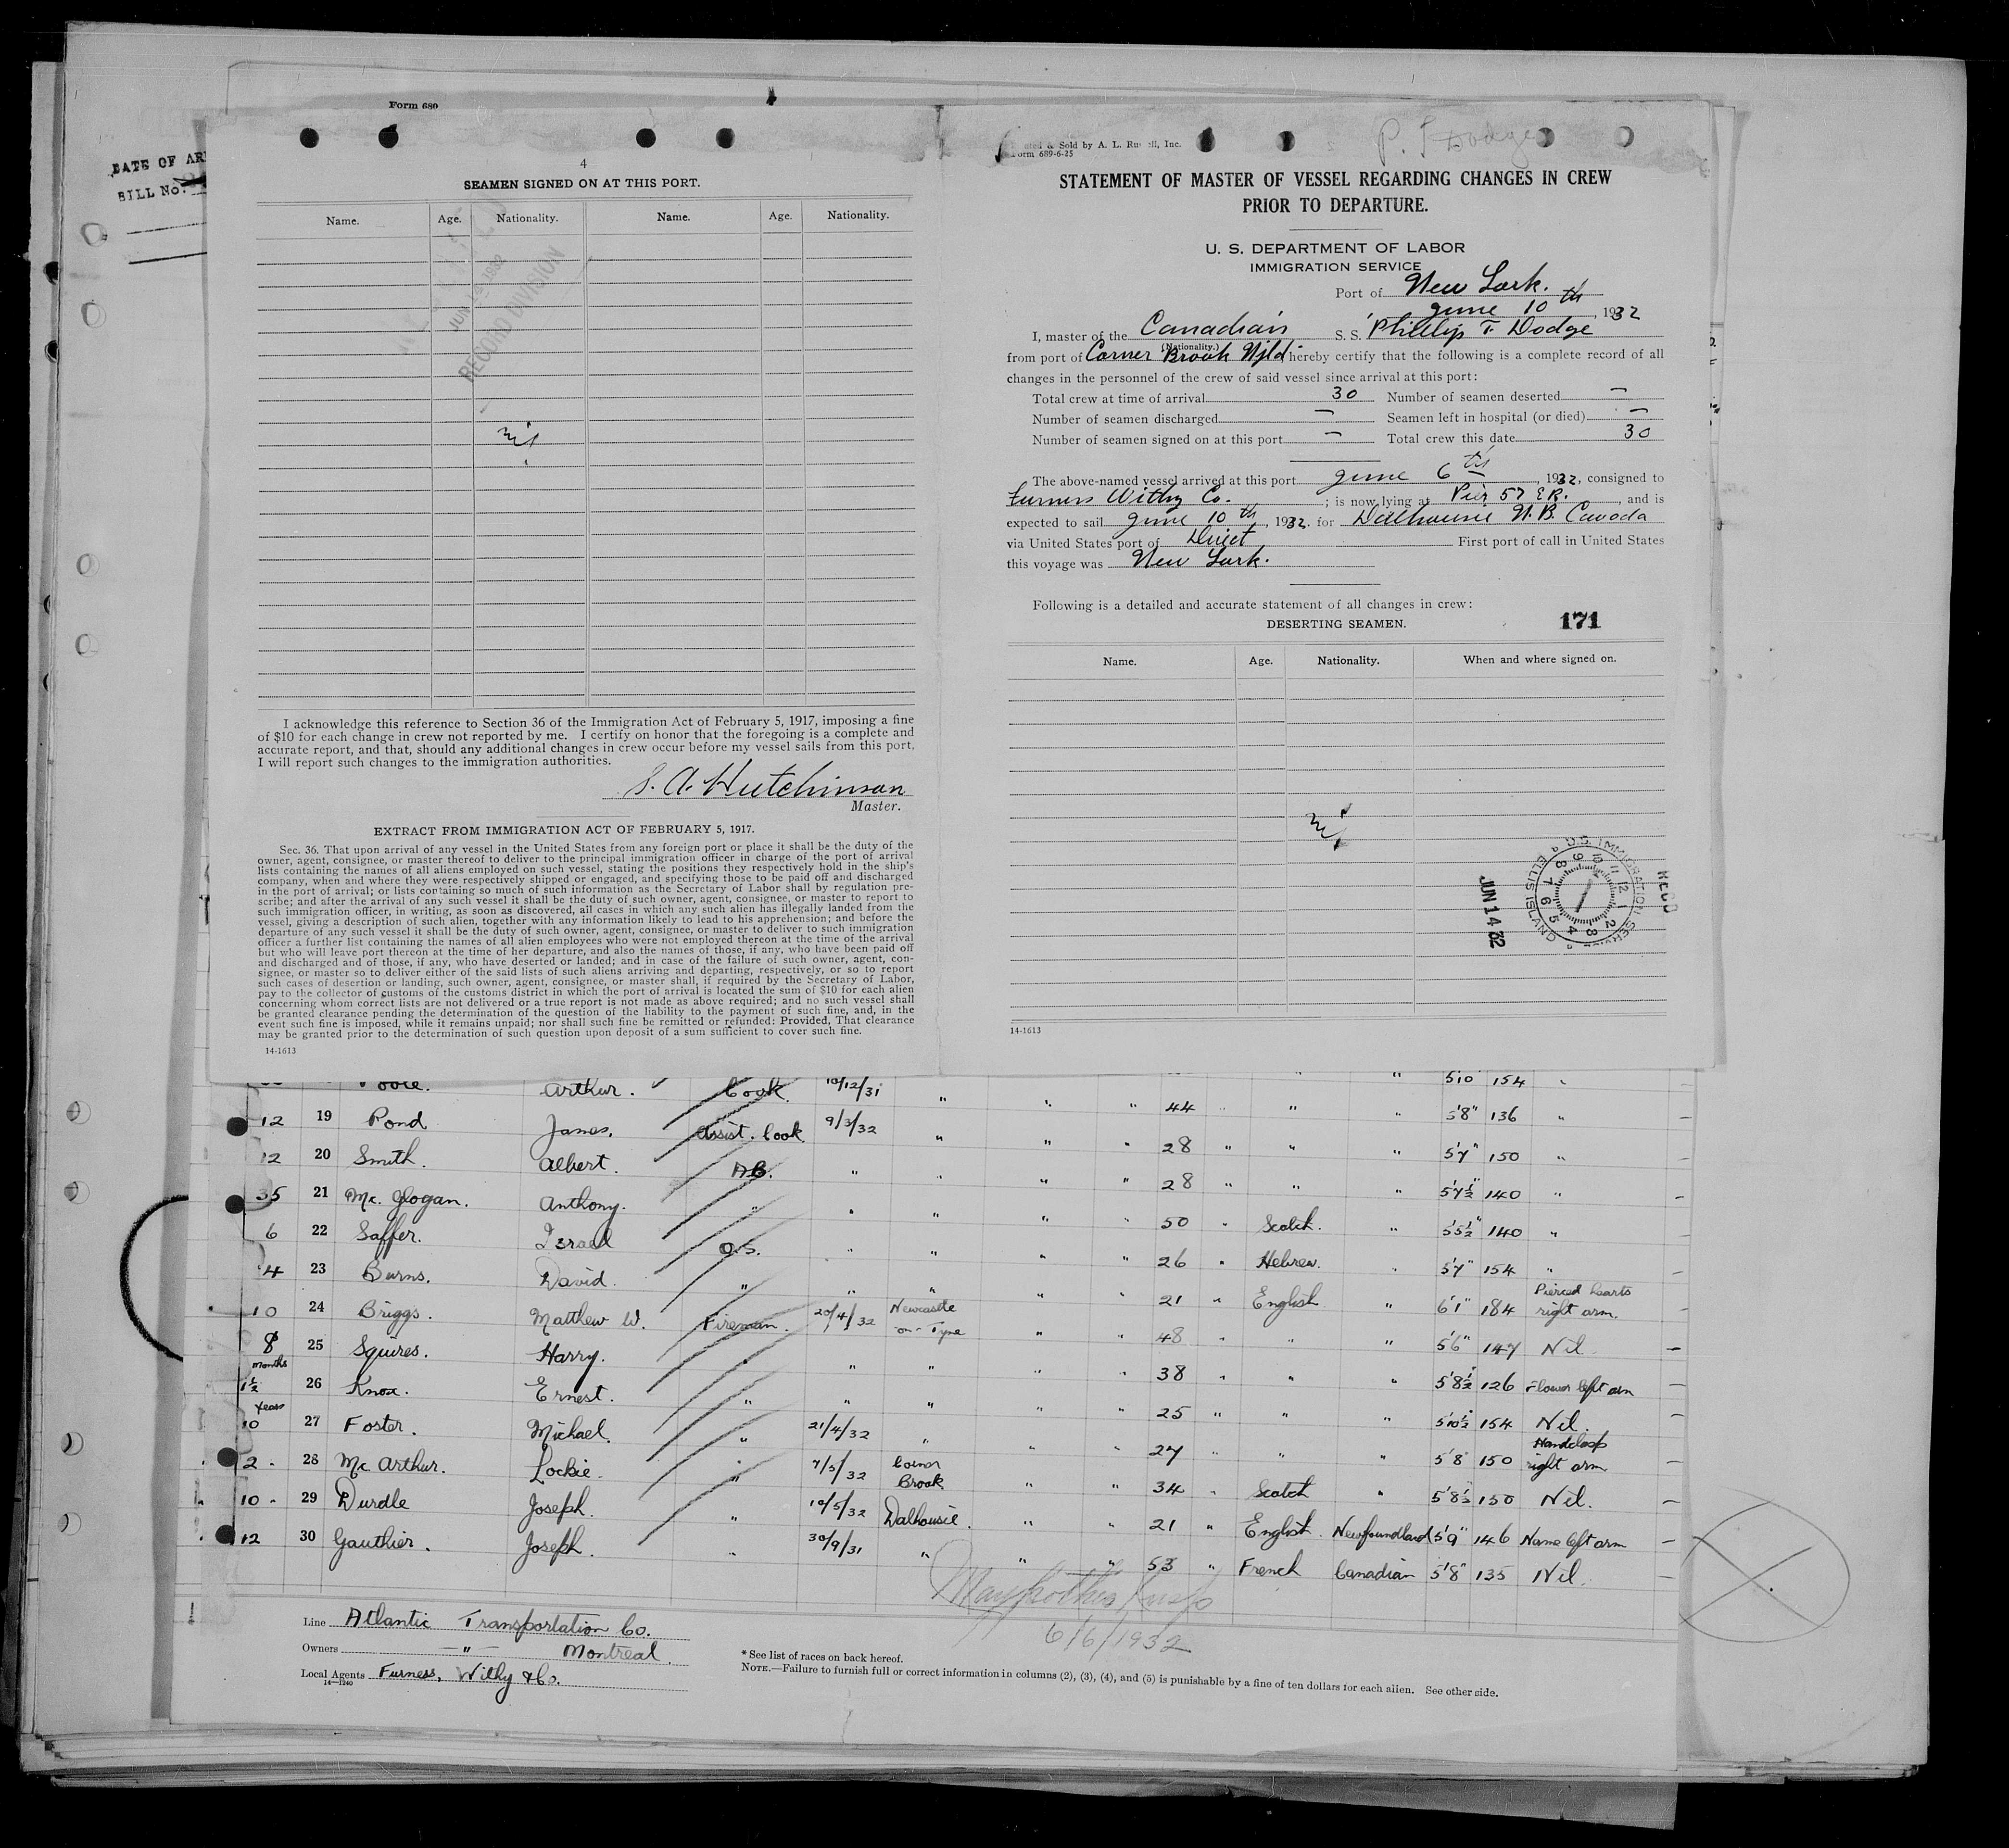 Form 680
DATE OF AR
BILL No.
4
SEAMEN SIGNED ON AT THIS PORT.
Name. Age. Nationality. Name. Age. Nationality.
RECORD DIVISION
Nil
I acknowledge this reference to Section 36 of the Immigration Act of February 5, 1917, imposing a fine
of $10 for each change in crew not reported by me. I certify on honor that the foregoing is a complete and
accurate report, and that, should any additional changes in crew occur before my vessel sails from this port,
I will report such changes to the immigration authorities.
S. A. Hutchinson
Master.
EXTRACT FROM IMMIGRATION ACT OF FEBRUARY 5, 1917.
Sec. 36. That upon arrival of any vessel in the United States from any foreign port or place it shall be the duty of the
owner, agent, consignee, or master thereof to deliver to the principal immigration officer in charge of the port of arrival
lists containing the names of all aliens employed on such vessel, stating the positions they respectively hold in the ship's
company, when and where they were respectively shipped or engaged, and specifying those to be paid off and discharged
in the port of arrival; or lists containing so much of such information as the Secretary of Labor shall by regulation pre-
scribe; and after the arrival of any such vessel it shall be the duty of such owner, agent, consignee, or master to report to
such immigration officer, in writing, as soon as discovered, all cases in which any such alien has illegally landed from the
vessel, giving a description of such alien, together with any information likely to lead to his apprehension; and before the
departure of any such vessel it shall be the duty of such owner, agent, consignee, or master to deliver to such immigration
officer a further list containing the names of all alien employees who were not employed thereon at the time of the arrival
but who will leave port thereon at the time of her departure, and also the names of those, if any, who have been paid off
and discharged and of those, if any, who have deserted or landed; and in case of the failure of such owner, agent, con-
signee, or master so to deliver either of the said lists of such aliens arriving and departing, respectively, or so to report
such cases of desertion or landing, such owner, agent, consignee, or master shall, if required by the Secretary of Labor,
pay to the collector of customs of the customs district in which the port of arrival is located the sum of $10 for each alien
concerning whom correct lists are not delivered or a true report is not made as above required; and no such vessel shall
be granted clearance pending the determination of the question of the liability to the payment of such fine, and, in the
event such fine is imposed, while it remains unpaid; nor shall such fine be remitted or refunded: Provided, That clearance
may be granted prior to the determination of such question upon deposit of a sum sufficient to cover such fine.
14-1613
& Sold by A. L. Russell, Inc.
Form 689-6-25
P. T Dodge
STATEMENT OF MASTER OF VESSEL REGARDING CHANGES IN CREW
PRIOR TO DEPARTURE.
U. S. DEPARTMENT OF LABOR
IMMIGRATION SERVICE
Port of New York.
June 10th, 1932
I, master of the Canadian S. S. Phillip T. Dodge
(Nationality.)
from port of Corner Brook Nfld hereby certify that the following is a complete record of all
changes in the personnel of the crew of said vessel since arrival at this port:
Total crew at time of arrival 30 Number of seamen deserted —
Number of seamen discharged — Seamen left in hospital (or died) —
Number of seamen signed on at this port — Total crew this date 30
The above-named vessel arrived at this port June 6th, 1932, consigned to
Furness Withy Co. ; is now lying at Pier 57 E R. , and is
expected to sail June 10th, 1932. for Dalhousie N. B. Canada
via United States port of Direct First port of call in United States
this voyage was New York.
Following is a detailed and accurate statement of all changes in crew:
DESERTING SEAMEN. 171
Name. Age. Nationality. When and where signed on.
Nil
U.S. IMMIGRATION SERVICE ELLIS ISLAND
JUN 14 32
RECD
14-1613
Arthur. Cook 10/12/31 " " " 44 " " " 5'10 154 "
12 19 Pond James. Assist. Cook 9/3/32 " " " 28 " " " 5'8" 136 "
12 20 Smith. Albert. A.B. " " " " 28 " " " 5'7" 150 "
35 21 Mc. Glogan. Anthony. " " " " " 50 " Scotch. " 5'7½" 140 "
6 22 Saffer. Israel O.S. " " " " 26 " Hebrew. " 5'5½" 140 "
4 23 Burns. David. " " " " " 21 " English " 5'7" 154 "
10 24 Briggs. Matthew W. Fireman. 20/4/32 Newcastle on-Tyne " " 48 " " " 6'1" 184 Pierced hearts right arm.
8 months 25 Squires. Harry. " " " " " 38 " " " 5'6" 147 Nil
1½ years 26 Knox. Ernest. " " " " " 25 " " " 5'8½ 126 Flower left arm
10 27 Foster. Michael. " 21/4/32 " " " 27 " " " 5'10½ 154 Nil.
2 " 28 Mc Arthur. Lockie. " 7/5/32 Corner Brook " " 34 " Scotch " 5'8" 150 Handclasp right arm
10 " 29 Durdle Joseph. " 10/5/32 Dalhousie. " " 21 " English. Newfoundland 5'8½ 150 Nil.
12 30 Gauthier. Joseph. " 30/9/31 " " " 53 " French Canadian 5'9" 146 Name left arm
5'8" 135 Nil.
6/6/1932
Line Atlantic Transportation Co.
Owners —"— Montreal.
Local Agents Furness, Withy & Co.
14—1240
* See list of races on back hereof.
NOTE.—Failure to furnish full or correct information in columns (2), (3), (4), and (5) is punishable by a fine of ten dollars for each alien. See other side.